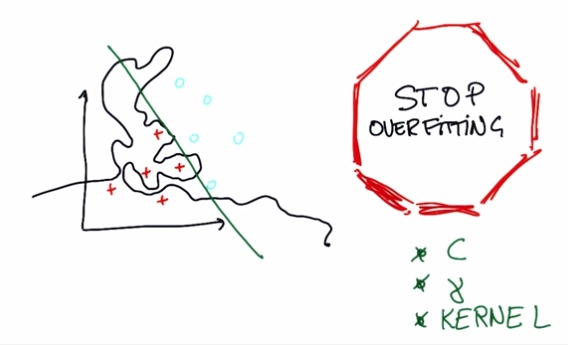 STOP
OVERFITTING
* C
* γ
* KERNEL